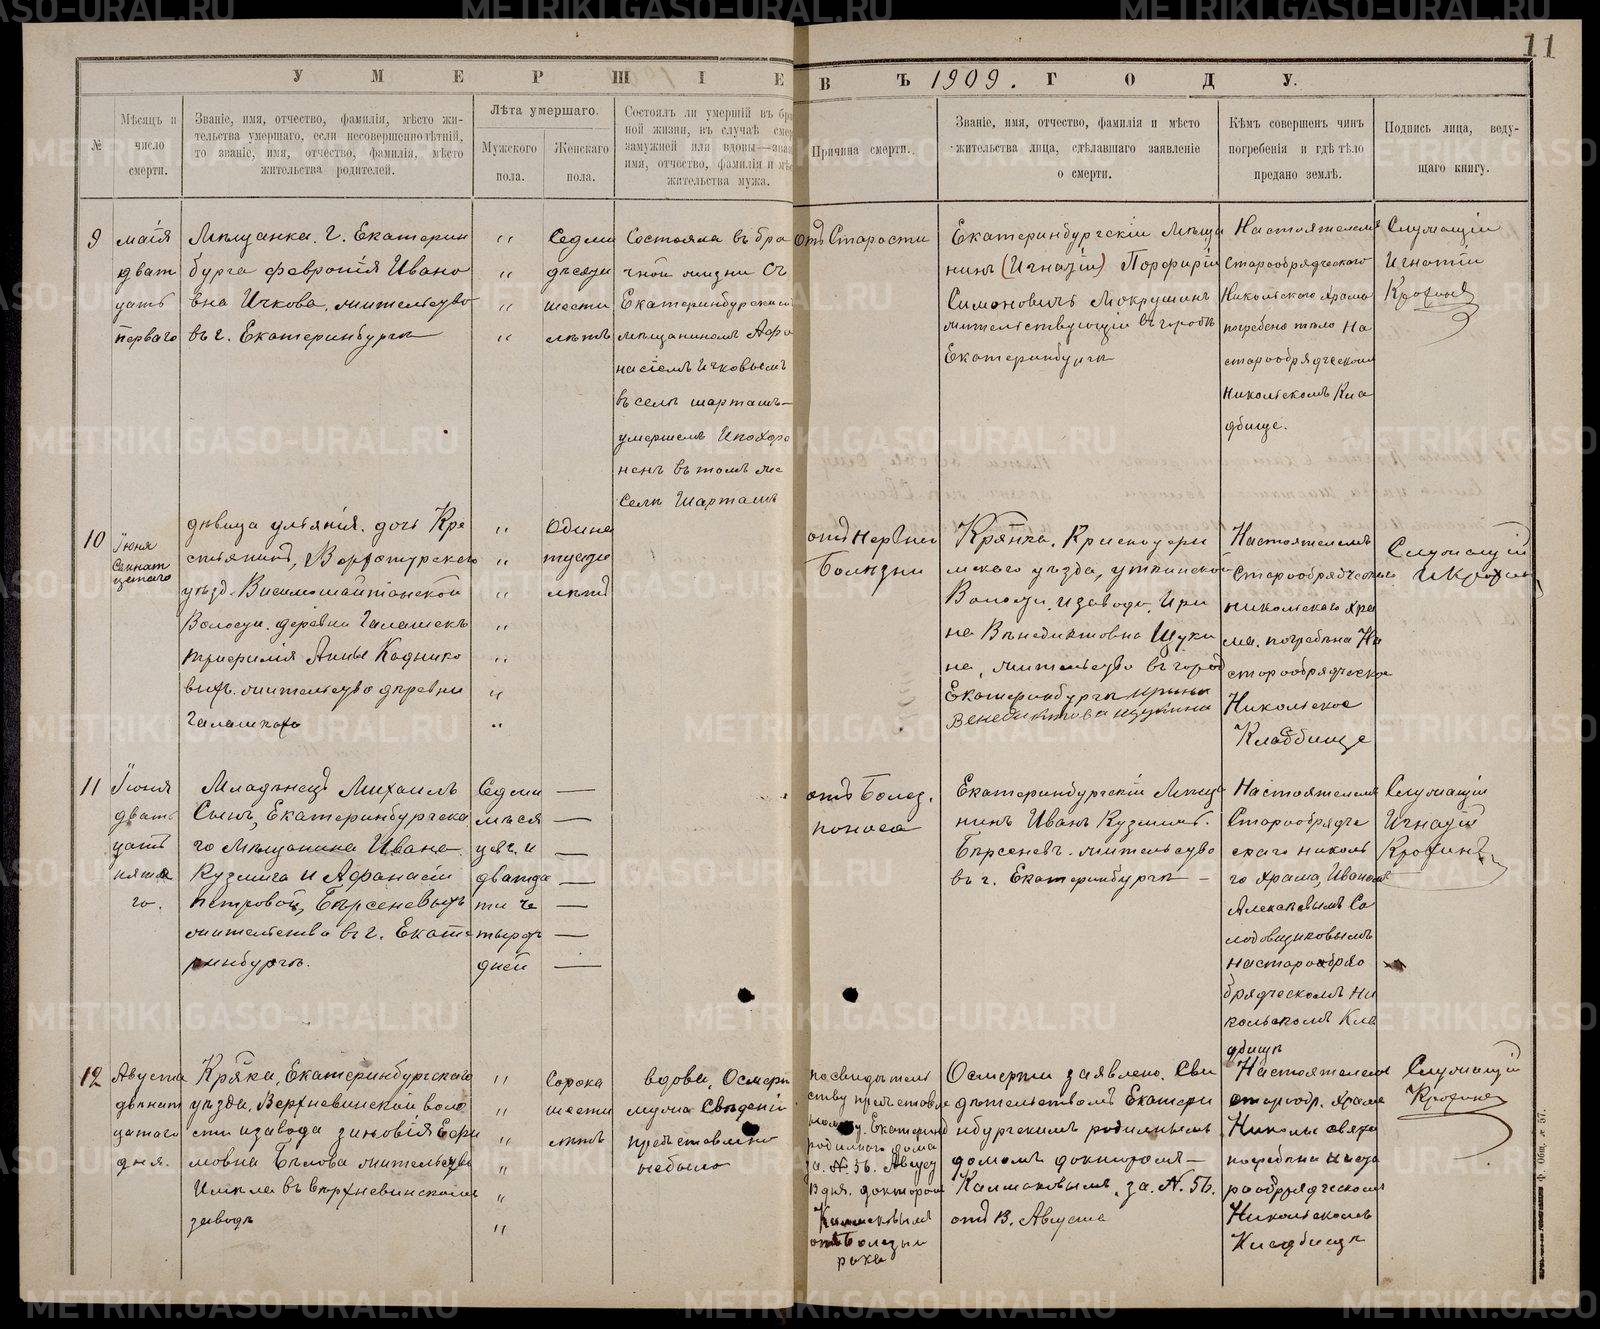 11
УМЕРШІЕ ВЪ 1909. ГОДУ.
№
Мѣсяцъ и
число
смерти.
Званіе, имя, отчество, фамилія, мѣсто жи-
тельства умершаго, если несовершеннолѣтній,
то званіе, имя, отчество, фамилія, мѣсто
жительства родителей.
Лѣта умершаго.
Мужского
пола.
Женскаго
пола.
Состоялъ ли умершій въ бра
ной жизни, въ случаѣ смер
замужней или вдовы—зва
имя, отчество, фамилія и мѣс
жительства мужа.
Причина смерти.
Званіе, имя, отчество, фамилія и мѣсто
жительства лица, сдѣлавшаго заявленіе
о смерти.
Кѣмъ совершенъ чинъ
погребенія и гдѣ тѣло
предано землѣ.
Подпись лица, веду-
щаго книгу.
9
маія
дват
цать
перваго
Мѣщанка. г. Екатерин
бурга Февронія Ивано
вна Ичкова, жительство
въ г. Екатеринбургѣ
"
"
"
"
Седми
дѣсяти
шести
лѣтъ
Состояла въ бра
чной жизни съ
Екатеринбурским
мѣщаниномъ Афо
насіемъ Ичковымъ
въ селѣ шарташъ—
умершемъ Ипохоро
ненъ въ томъ же
Селѣ Шарташъ
отъ Старости
Екатеринбургскій Мѣща
нинъ (Игнатій) Порфирій
Симоновичъ Мокрушинъ
жительствующій въ городѣ
Екатеринбургѣ
Настоятелемъ
Старообрядческого
Никольского храма
погребено тѣло на
старообрядческомъ
никольскомъ Кла
дбище.
Служащій
Игнатій
Крохинъ
10
Іюня
двица ульянія. дочь Кре
стьянинъ, Верхотурскаго
уѣзд. Висимошайтанской
Волости. деревни Галашекъ
Анны Каднико
выхъ. жительство деревни
"
"
"
"
"
"
"
лѣтъ
отъ
Болѣзни
Красноуфи
мского уѣзда, уткинской
Волости, изавода, Ири
на Вѣнедиктовна Щуки
на, жительство въ город
Екатеринбургѣ Ирина
Венедиктова щукина
Настоятелемъ
Старообрядческаго
никольскаго хра
ма. погрѣбѣна На
старообрядческое
Никольское
Кладбище
Служащій
И Крохинъ
11
Іюня
двать
цать
пята
го.
Младѣнецъ Михаилъ
Сынъ, Екатеринбургска
го Мѣщанина Ивана.
Кузмича и Афанасіи
петровой, Бѣрсеневыхъ
жительство въ г. Екате
ринбургѣ.
Седми
мѣся
цѣв. и
дватца
ти че
тырѣ
дней
отъ Болез.
поноса
Екатеринбургскій Мѣща
нинъ Иванъ Кузмичъ.
Бѣрсеневъ. жительство
въ г. Екатеринбургѣ —
Настоятелемъ
Старообрядче
скаго николь
го храма, Иваномъ
Алексѣевымъ Са
ладовщиковымъ
на старообряо
брядческомъ ни
кольскомъ Кла
дбищѣ
Служащій
Игнатій
Крохинъ
12
Августа
двѣнат
цатаго
дня.
Кр-ка, Екатеринбургскаго
уѣзда, Верхневинской воло
сти изавода зиновія Ефи
мовна Бѣлова жительство
Имѣла въ верхневинскомъ
заводѣ
"
"
"
"
"
"
Сорока
шести
лѣтъ
вдова, О смерти
мужа Свѣденій
представлено
небыло
посвидѣтель
ству представле
Екатеринб
родилного дома
за. №. 56. Август
13 дня. докторомъ
отъ Болезни
рака
О смерти заявлено. Сви
дѣтельствомъ Екатери
нбургскимъ родильнымъ
домомъ докторомъ—
Калмаковымъ, за. №. 56.
отъ 13. Августа
Настоятелемъ
старообр. храма
Николы свято
погребѣна наста
рообрядческомъ
Никольскомъ
Кладбищѣ
Служащій
Крохинъ
Ф. Общ. № 57.
METRIKI.GASO-URAL.RU